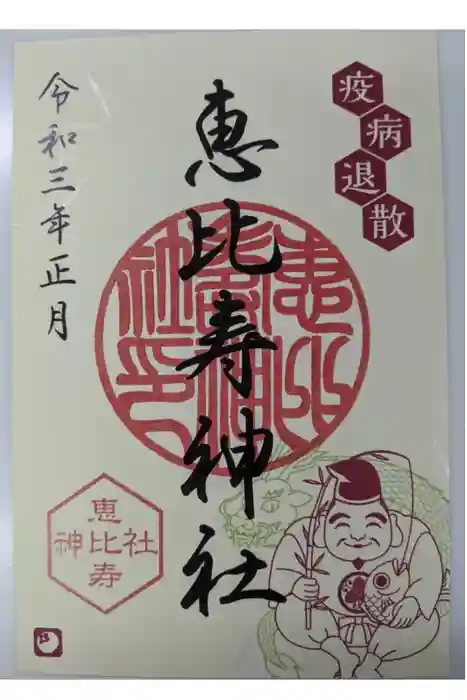 疫病退散
恵比寿神社
令和三年正月
恵比寿神社印
恵比寿
神社